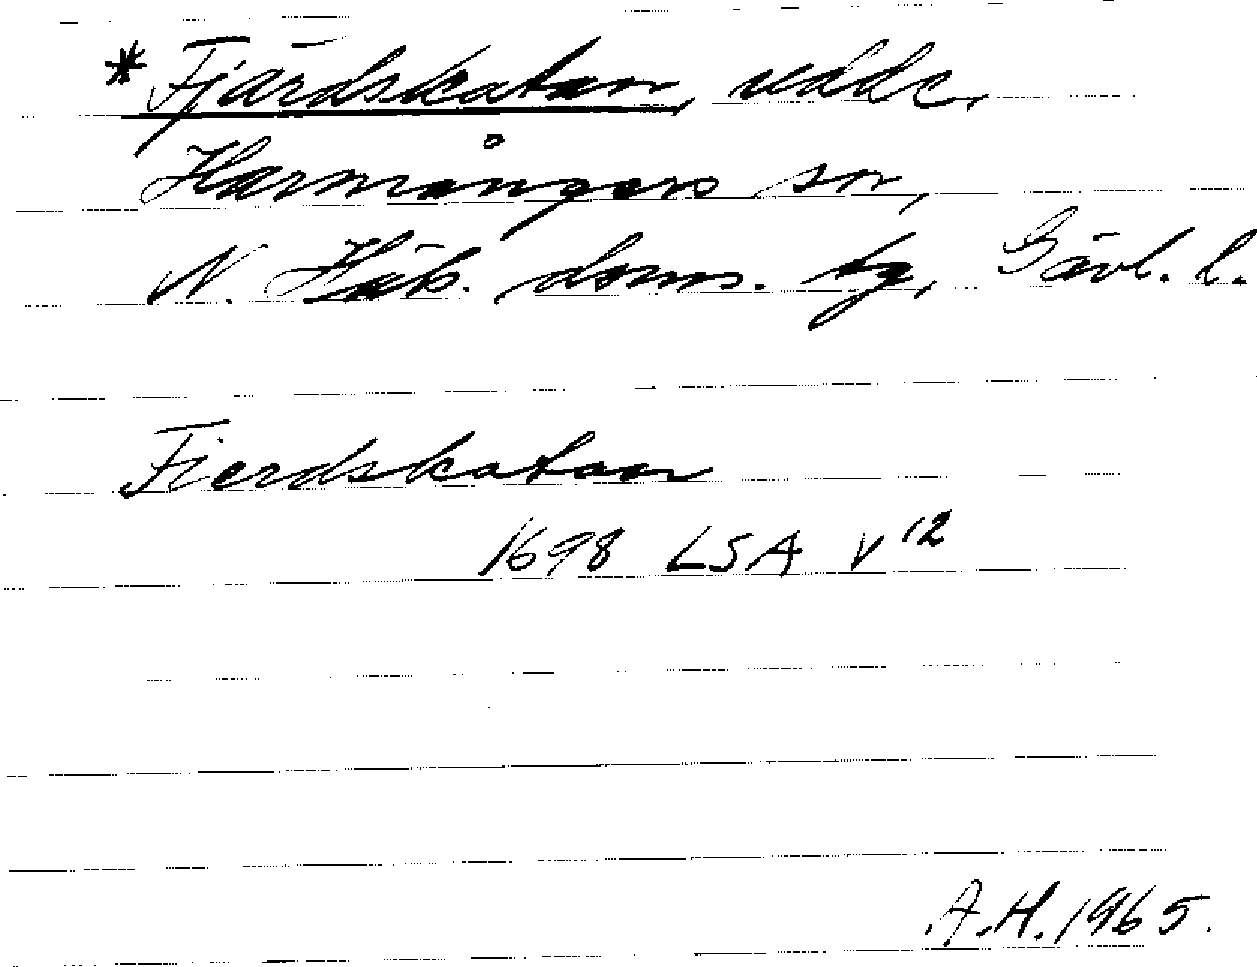 *Fjärdskatan, udde,
Harmångers sn,
N. Häls. doms. tg, Gävl. l.
Fierdskatan
1698 LSA V12
A.H. 1965.